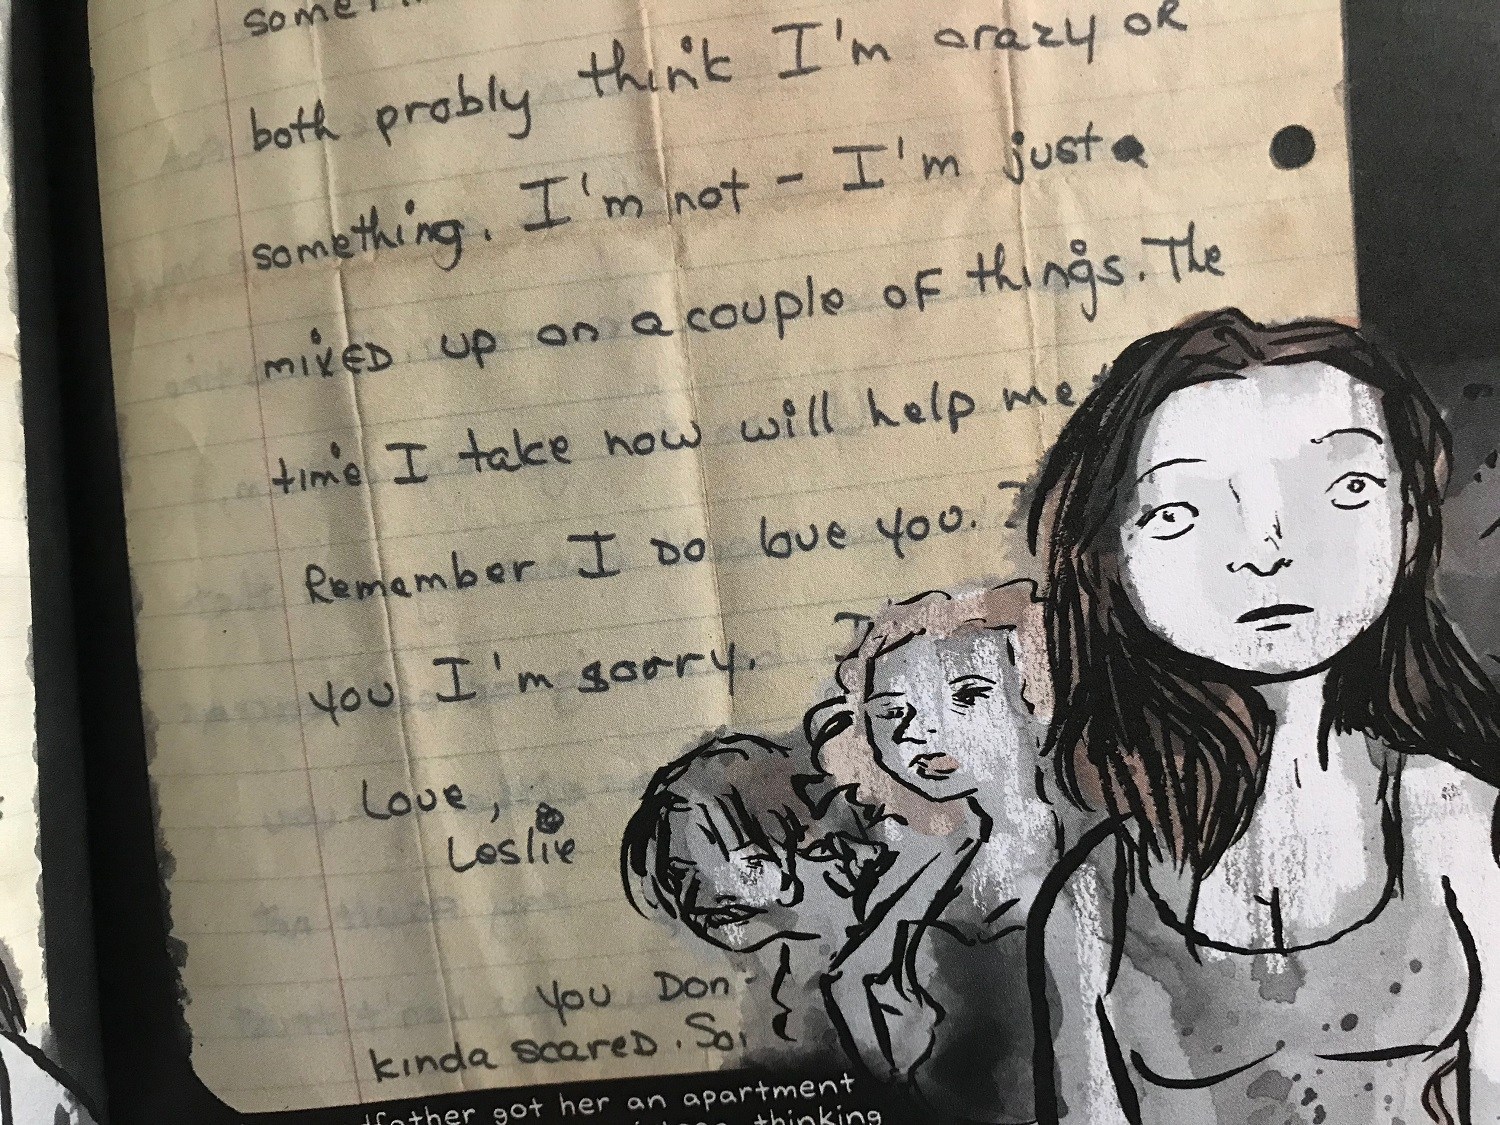 both probly think I'm crazy OR
something. I'm not - I'm just a
mixED up on a couple oF things. The
time I take now will help me
Remember I Do love you.
you I'm sorry.
Love,
Leslie
you Don
kinda scareD. So,
father got her an apartment
thinking